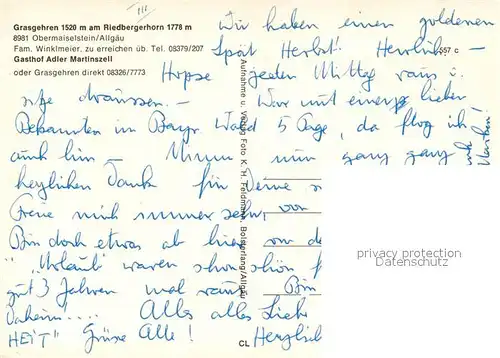 Grasgehren 1520 m am Riedbergerhorn 1778 m
8981 Obermaiselstein/Allgäu
Fam. Winklmeier. zu erreichen üb. Tel. 08379/207
Gasthof Adler Martinszell
oder Grasgehren direkt 08326/7773
557 c
Wir haben einen goldenen
Spät Herbst! Herrlich –
jeden Mittag raus u.
sitze draussen. – War mit einer lieben
Bekannten im Bayr. Wald 5 Tage, da flog ich
auch hin – nun ganz ganz
herzlichen Dank für Deine
Freue mich immer sehr, von
Bin doch etwas ab hier von
"Urlaub" waren schon schön
gut 3 Jahren mal raus. Bin
Daheim!.... Alles alles Liebe
Grüsse Alle! Herzlich
Aufnahme u. Verlag Foto K. H. Feldmann, Bolsterlang/Allgäu
CL
privacy protection
DarkCartes.com